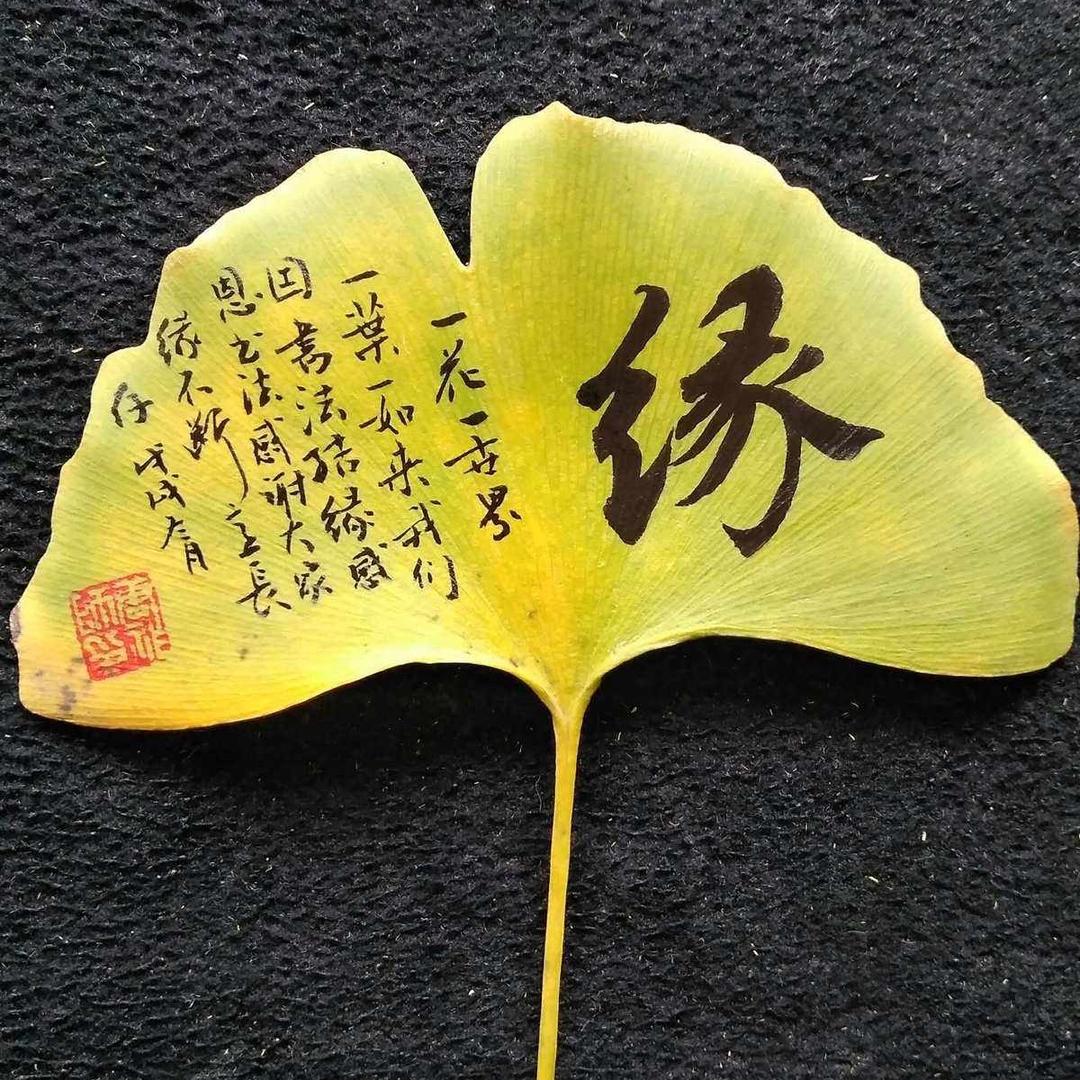 缘
一花一世界
一葉一如来我们
因書法结缘感
恩书法感谢大家
缘不断
戊戌